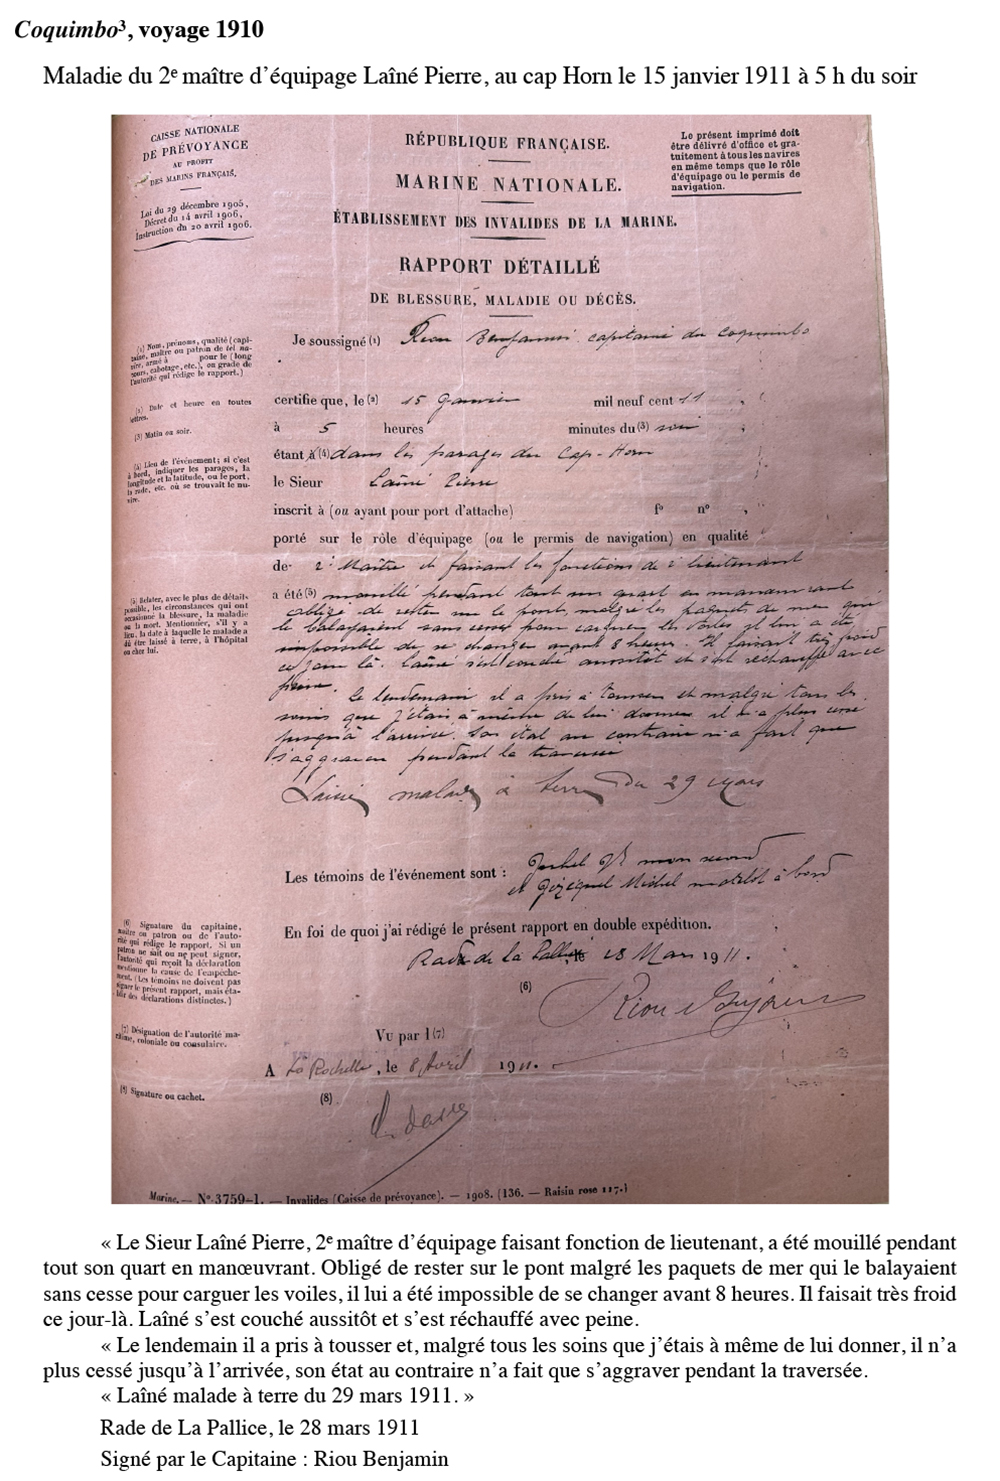 Coquimbo³, voyage 1910
Maladie du 2e maître d’équipage Laîné Pierre, au cap Horn le 15 janvier 1911 à 5 h du soir
CAISSE NATIONALE
DE PRÉVOYANCE
AU PROFIT
DES MARINS FRANÇAIS.
Loi du 29 décembre 1905,
Décret du 14 avril 1906,
Instruction du 20 avril 1906.
RÉPUBLIQUE FRANÇAISE.
MARINE NATIONALE.
ÉTABLISSEMENT DES INVALIDES DE LA MARINE.
Le présent imprimé doit
être délivré d'office et gra-
tuitement à tous les navires
en même temps que le rôle
d'équipage ou le permis de
navigation.
RAPPORT DÉTAILLÉ
DE BLESSURE, MALADIE OU DÉCÈS.
(1) Nom, prénoms, qualité (capi-
taine, maître ou patron de tel na-
vire, armé à pour le (long
cours, cabotage, etc.), ou grade de
l'autorité qui rédige le rapport.)
Je soussigné (1) Riou Benjamin capitaine du Coquimbo
(2) Date et heure en toutes
lettres.
certifie que, le (2) 15 Janvier mil neuf cent 11
(3) Matin ou soir.
à 5 heures minutes du (3) soir
(4) Lieu de l'événement; si c'est
à bord, indiquer les parages, la
longitude et la latitude, ou le port,
la rade, etc. où se trouvait le na-
vire.
étant à (4) dans les parages du Cap-Horn
le Sieur Laîné Pierre
inscrit à (ou ayant pour port d'attache) f° n° ,
porté sur le rôle d'équipage (ou le permis de navigation) en qualité
de 2e Maître et faisant les fonctions de 2e lieutenant
(5) Relater, avec le plus de détails
possible, les circonstances qui ont
occasionné la blessure, la maladie
ou la mort. Mentionner, s'il y a
lieu, la date à laquelle le malade a
dû être laissé à terre, à l'hôpital
ou chez lui.
a été (5) mouillé pendant tout son quart en manœuvrant
obligé de rester sur le pont malgré les paquets de mer qui
le balayaient sans cesse pour carguer les voiles il lui a été
impossible de se changer avant 8 heures. Il faisait très froid
ce jour là. Laîné s'est couché aussitôt et s'est réchauffé avec
peine. Le lendemain il a pris à tousser et malgré tous les
soins que j'étais à même de lui donner il n'a plus cessé
jusqu'à l'arrivée. Son état au contraire n'a fait que
s'aggraver pendant la traversée
Laîné malade à terre du 29 mars
Les témoins de l'événement sont : mon second
et Michel matelot à bord
En foi de quoi j'ai rédigé le présent rapport en double expédition.
Rade de la Pallice 28 Mars 1911.
(6) Signature du capitaine,
maître ou patron ou de l'auto-
rité qui rédige le rapport. Si un
patron ne sait ou ne peut signer,
l'autorité qui reçoit la déclaration
mentionne la cause de l'empêche-
ment. (Les témoins ne doivent pas
signer le présent rapport, mais éta-
blir des déclarations distinctes.)
(6)
Riou Benjamin
(7) Désignation de l'autorité ma-
ritime, coloniale ou consulaire.
Vu par l (7)
A La Rochelle, le 8 Avril 1911.
(8) Signature ou cachet.
(8)
Marine. — N° 3759-1. — Invalides (Caisse de prévoyance). — 1908. (136. — Raisin rose 117.)
« Le Sieur Laîné Pierre, 2e maître d’équipage faisant fonction de lieutenant, a été mouillé pendant
tout son quart en manœuvrant. Obligé de rester sur le pont malgré les paquets de mer qui le balayaient
sans cesse pour carguer les voiles, il lui a été impossible de se changer avant 8 heures. Il faisait très froid
ce jour-là. Laîné s’est couché aussitôt et s’est réchauffé avec peine.
« Le lendemain il a pris à tousser et, malgré tous les soins que j’étais à même de lui donner, il n’a
plus cessé jusqu’à l’arrivée, son état au contraire n’a fait que s’aggraver pendant la traversée.
« Laîné malade à terre du 29 mars 1911. »
Rade de La Pallice, le 28 mars 1911
Signé par le Capitaine : Riou Benjamin